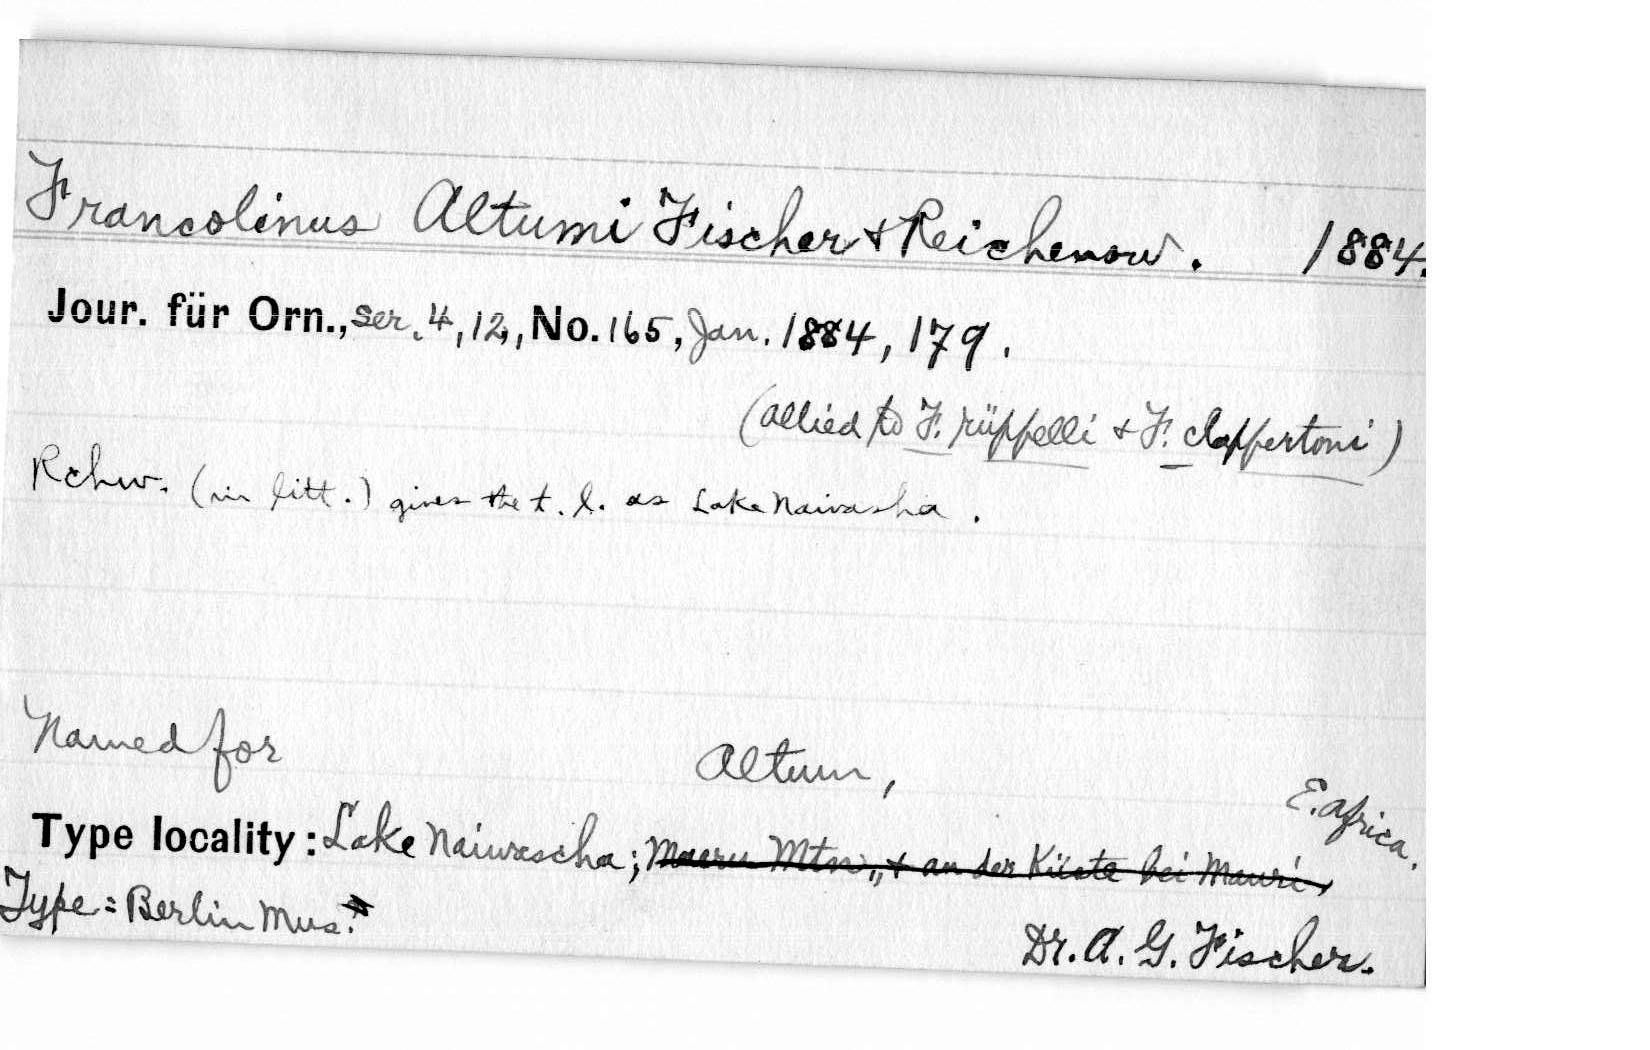 Francolinus Altumi Fischer & Reichenow. 1884.
Jour. für Orn., ser. 4, 12, No. 165, Jan. 1884, 179.
(allied to F. rüppelli & F. clappertoni)
Rchw. (in litt.) gives the t. l. as Lake Naivasha.
Named for Altum,
E. Africa.
Type locality: Lake Naiwascha; Maeru Mtn., & an der Küste bei Mauri
Type = Berlin Mus.
Dr. A. G. Fischer.